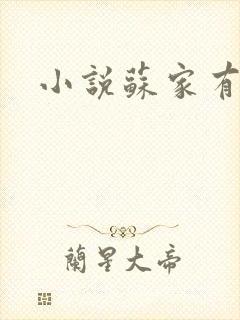 小說蘇家有
蘭星大帝